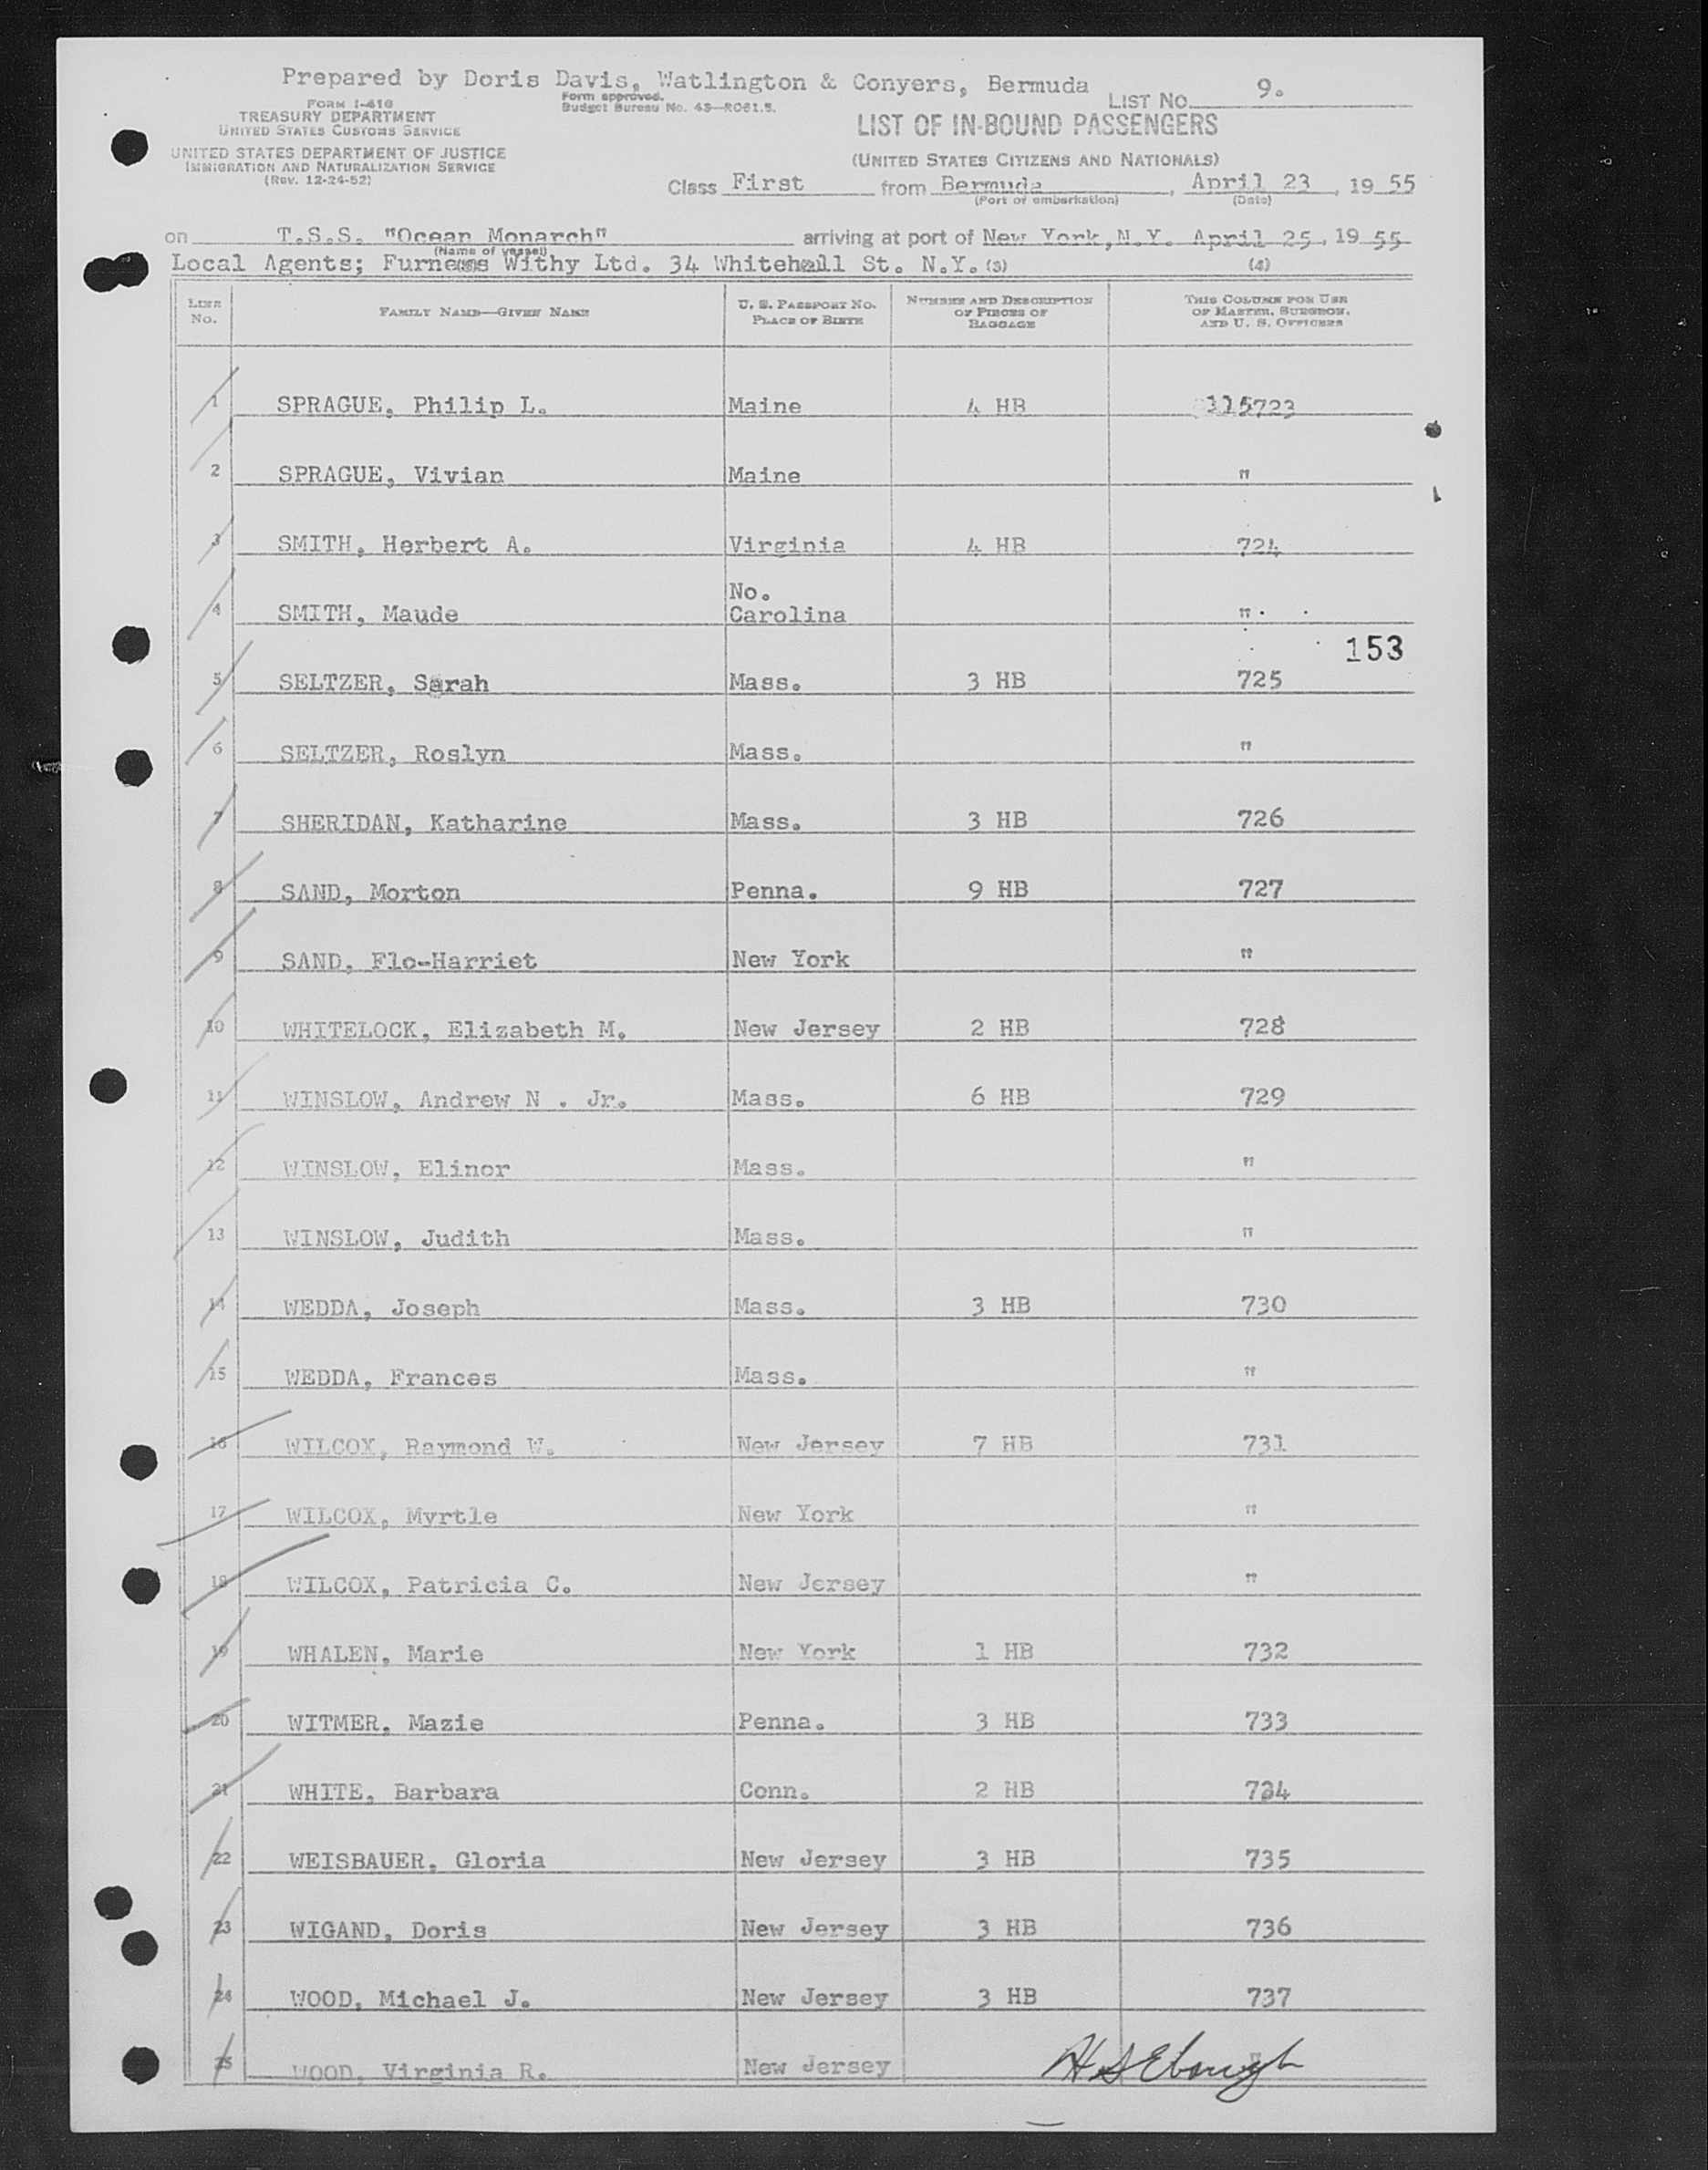 Prepared by Doris Davis, Watlington & Conyers, Bermuda
LIST No. 9.
FORM I-418
TREASURY DEPARTMENT
UNITED STATES CUSTOMS SERVICE
Form approved.
Budget Bureau No. 43—RO61.5.
LIST OF IN-BOUND PASSENGERS
UNITED STATES DEPARTMENT OF JUSTICE
IMMIGRATION AND NATURALIZATION SERVICE
(Rev. 12-24-52)
(UNITED STATES CITIZENS AND NATIONALS)
Class First from Bermuda, April 23, 1955
(Port of embarkation) (Date)
on T.S.S. "Ocean Monarch" arriving at port of New York, N.Y. April 25, 1955
(Name of vessel)
Local Agents; Furness Withy Ltd. 34 Whitehall St. N.Y. (3) (4)
LINE No. FAMILY NAME—GIVEN NAME U. S. PASSPORT NO. PLACE OF BIRTH NUMBER AND DESCRIPTION OF PIECES OF BAGGAGE THIS COLUMN FOR USE OF MASTER, SURGEON, AND U. S. OFFICERS
1 SPRAGUE, Philip L. Maine 4 HB 115723
2 SPRAGUE, Vivian Maine "
3 SMITH, Herbert A. Virginia 4 HB 724
4 SMITH, Maude No. Carolina "
153
5 SELTZER, Sarah Mass. 3 HB 725
6 SELTZER, Roslyn Mass. "
7 SHERIDAN, Katharine Mass. 3 HB 726
8 SAND, Morton Penna. 9 HB 727
9 SAND, Flo-Harriet New York "
10 WHITELOCK, Elizabeth M. New Jersey 2 HB 728
11 WINSLOW, Andrew N . Jr. Mass. 6 HB 729
12 WINSLOW, Elinor Mass. "
13 WINSLOW, Judith Mass. "
14 WEDDA, Joseph Mass. 3 HB 730
15 WEDDA, Frances Mass. "
16 WILCOX, Raymond W. New Jersey 7 HB 731
17 WILCOX, Myrtle New York "
18 WILCOX, Patricia C. New Jersey "
19 WHALEN, Marie New York 1 HB 732
20 WITMER, Mazie Penna. 3 HB 733
21 WHITE, Barbara Conn. 2 HB 734
22 WEISBAUER, Gloria New Jersey 3 HB 735
23 WIGAND, Doris New Jersey 3 HB 736
24 WOOD, Michael J. New Jersey 3 HB 737
25 WOOD, Virginia R. New Jersey "